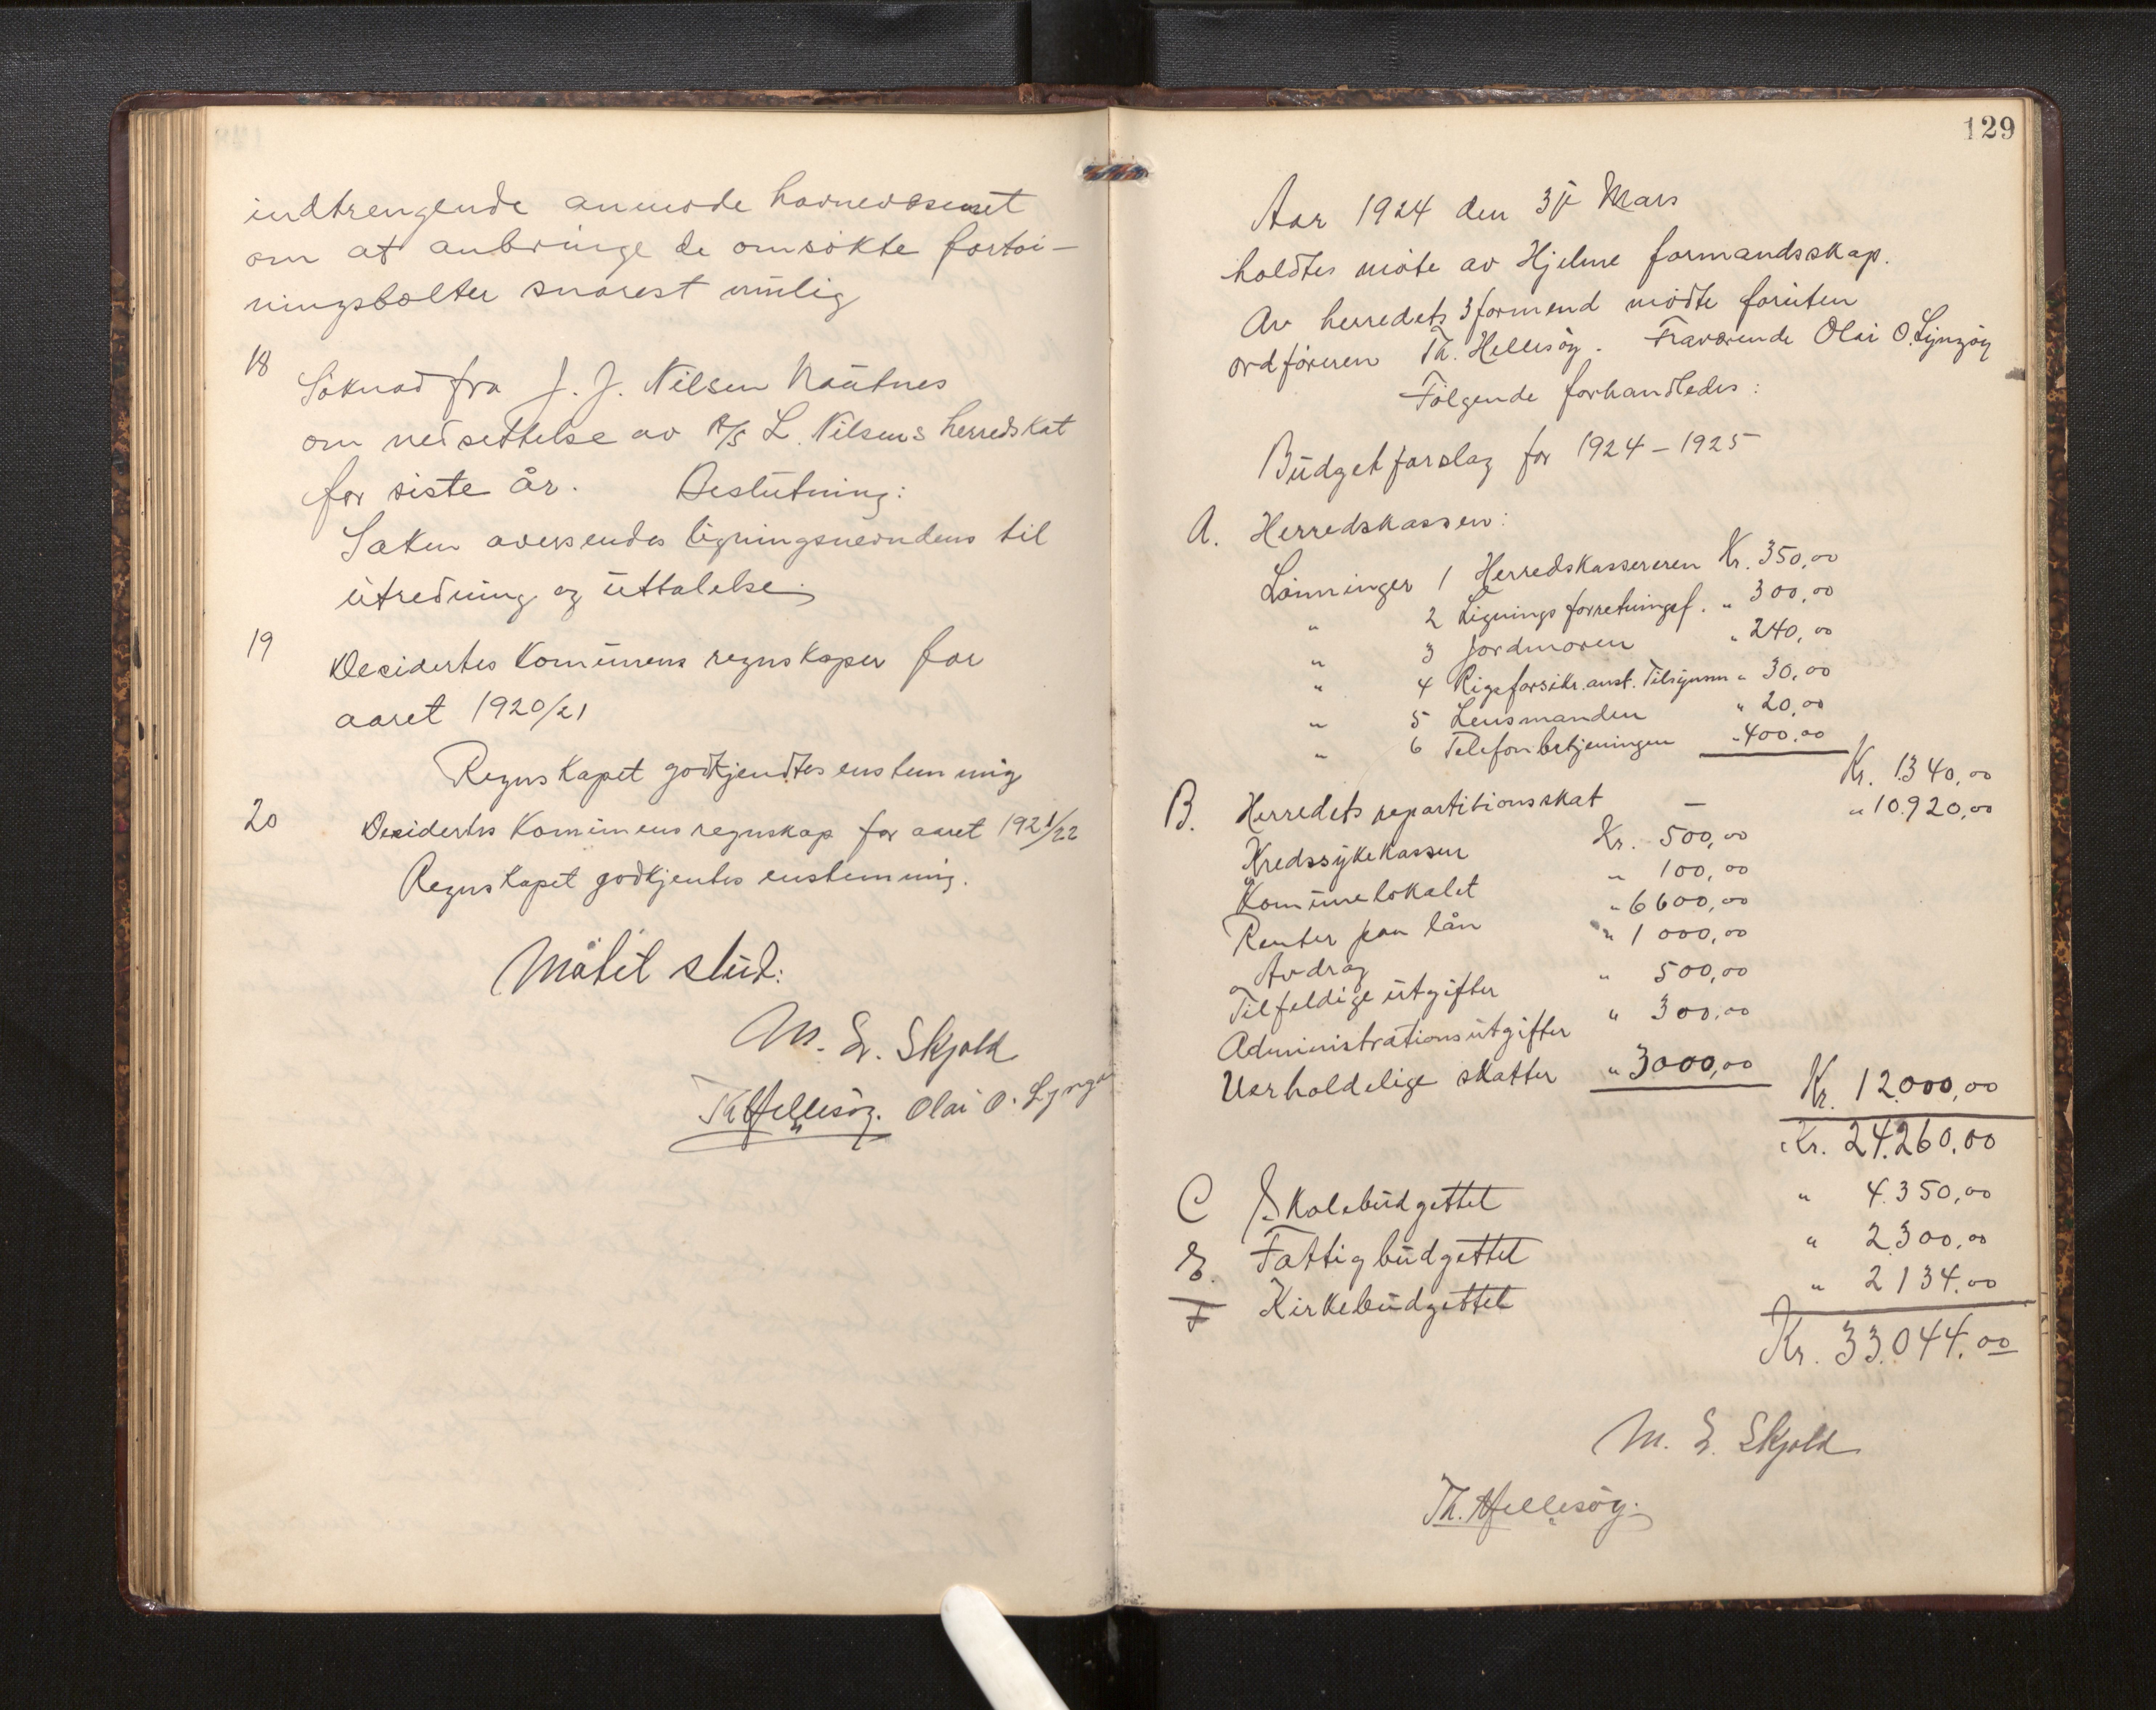 indtrengende anmode havnevæsenet
om at anbringe de omsökte fortöi-
ningsbolter snarest mulig
18 Söknad fra J. J. Nilsen Nautnes
om nedsettelse av A/S L. Nilsens herredskat
for siste år. Beslutning:
Saken oversendes ligningsnevndens til
utredning og uttalelse
19 Decidertes Komunens regnskaper for
aaret 1920/21
Regnskapet godkjendtes enstemmig
20 Decidertes Komunens regnskap for aaret 1921/22
Regnskapet godkjentes enstemmig.
Mötet slut:
M. E. Skjold
Th Hellesöy. Olai O. Lyngöy
129
Aar 1924 den 3je Mars
holdtes möte av Hjelme formandsskap.
Av herredets 3 formend mödte foruten
ordföreren Th. Hellesöy. Fraværende Olai O. Lyngöy
Fölgende forhandledes:
Budgetforslag for 1924-1925
A. Herredskassen:
Lönninger 1 Herredskassereren Kr. 350,00
" 2 Lignings forretningsf. " 300,00
" 3 Jordmoren " 240,00
" 4 Rigsforsikr. anst. Tilsynsm " 30,00
" 5 Lensmanden " 20,00
" 6 Telefonbetjeningen " 400,00
Kr. 1340,00
B. Herredets repartitionsskat — " 10.920,00
Kredssykekassen Kr. 500,00
Komunelokalet " 100,00
Renter paa lån " 6600,00
Avdrag " 1000,00
Tilfeldige utgifter " 500,00
Administrationsutgifter " 300,00
Uerholdelige skatter " 3000,00 Kr. 12.000,00
Kr. 24.260,00
C Skolebudgettet " 4.350,00
E. Fattigbudgettet " 2.300,00
F Kirkebudgettet " 2134.00
Kr. 33.044.00
M. E. Skjold
Th. Hellesöy.